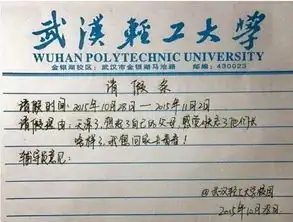 武漢輕工大學
WUHAN POLYTECHNIC UNIVERSITY
金银湖校区：武汉市金银湖马池路 邮编：430023
请假条
请假时间：2015年10月28日—2015年11月2日
请假理由：天深了，想我了自己的父母，感觉快忘了他们长
啥样了，我想回家去看看！
辅导员意见：
@武汉轻工大学校园
2015年10月28日